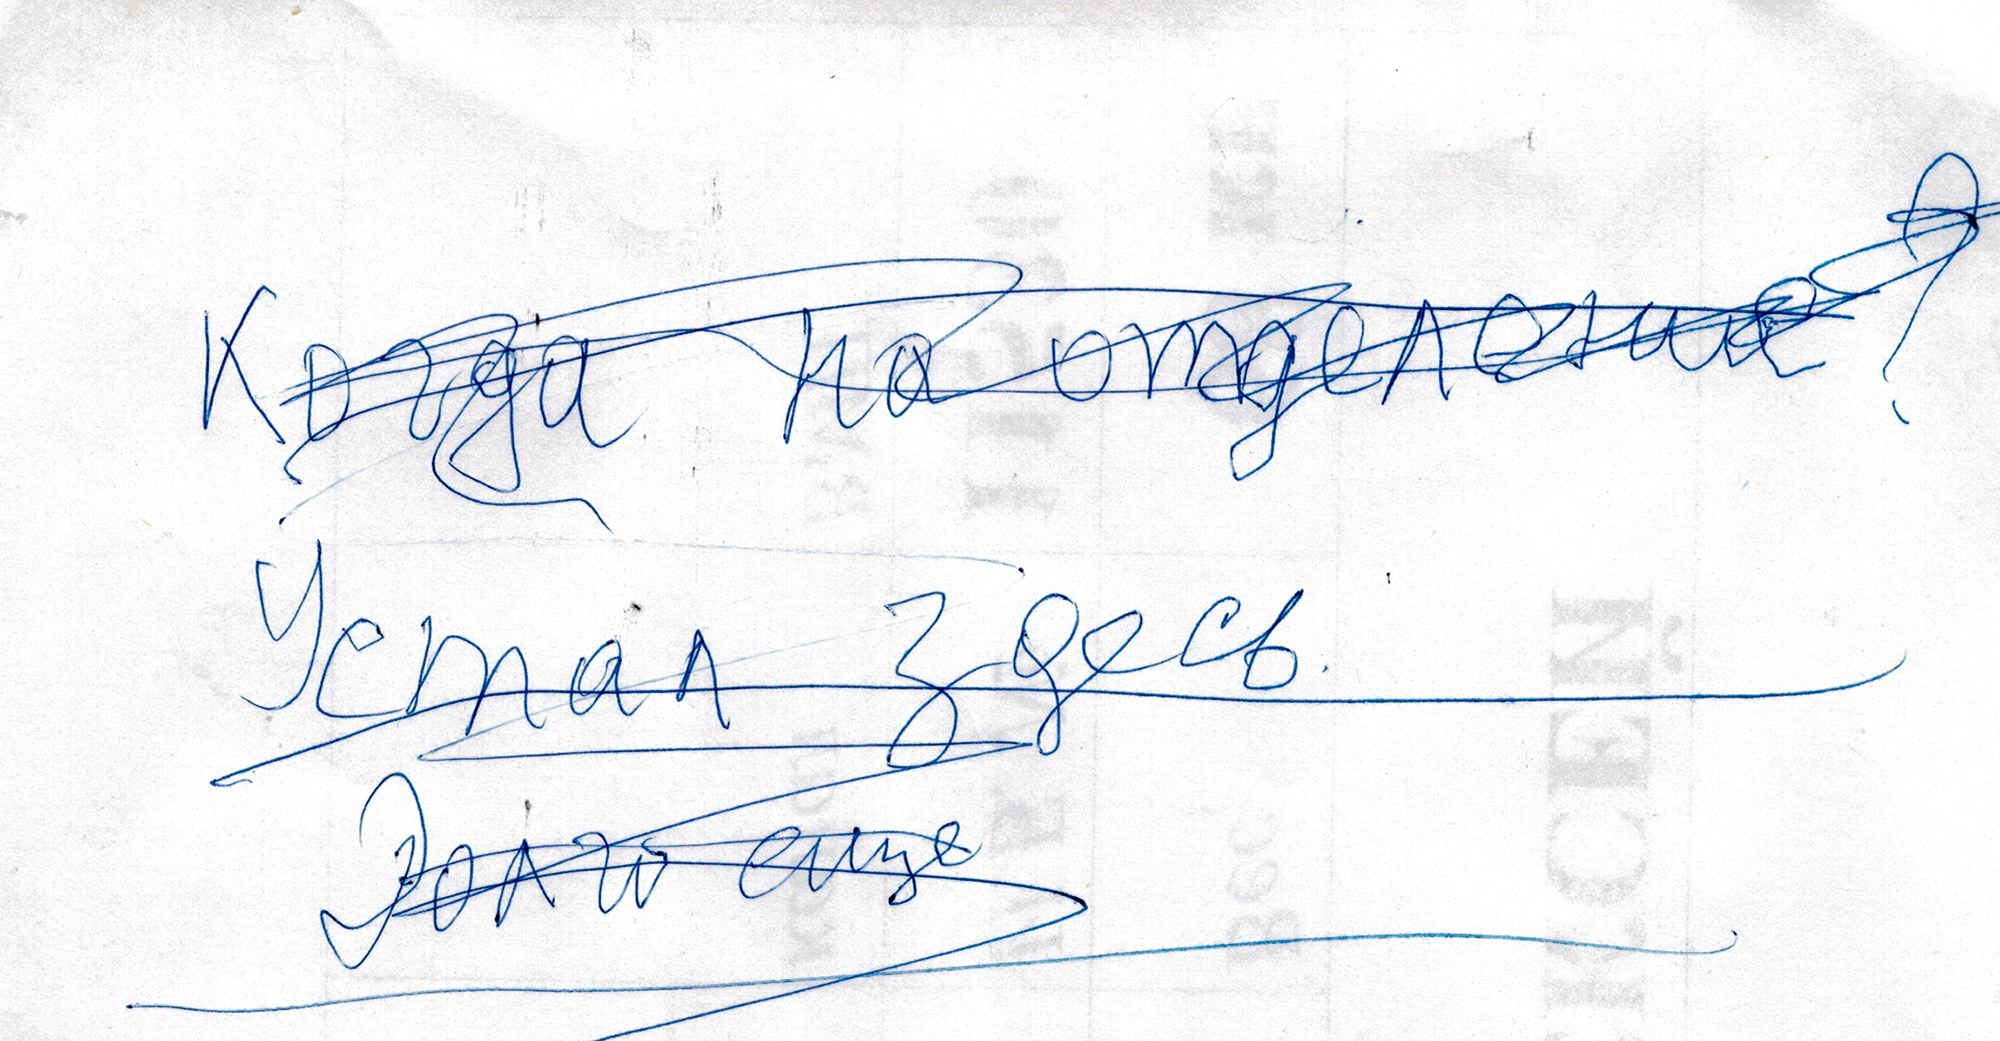 Когда на отделение?
Устал здесь.
Долго еще